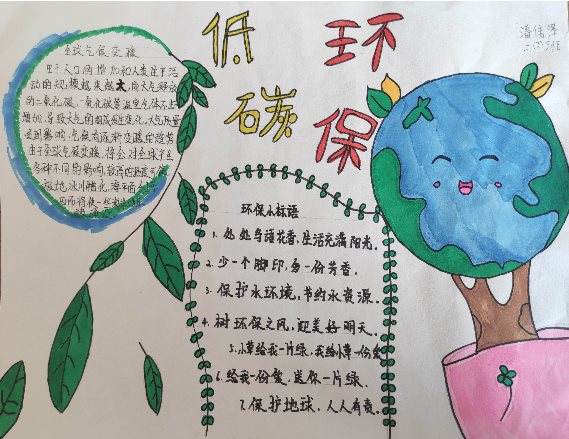 低碳
环保
全球气候变暖
由于人口的增加和人类生产活
动的规模越来越大,向大气释放
的二氧化碳、
导致大气的组成发生变化,大气质量
受到影响,气候有逐渐变暖的趋势
由于全球气候变暖,将会对全球产生
各种不同的影响,较高的温度可使
极地冰川融化,海平面
环保小标语
1、处处鸟语花香,生活充满阳光。
2、少一个脚印,多一份芳香。
3、保护水环境,节约水资源。
4、树环保之风,迎美好明天。
5、小草给我一片绿,我给小草一份爱
6、给我一份爱,送你一片绿。
7、保护地球,人人有责。